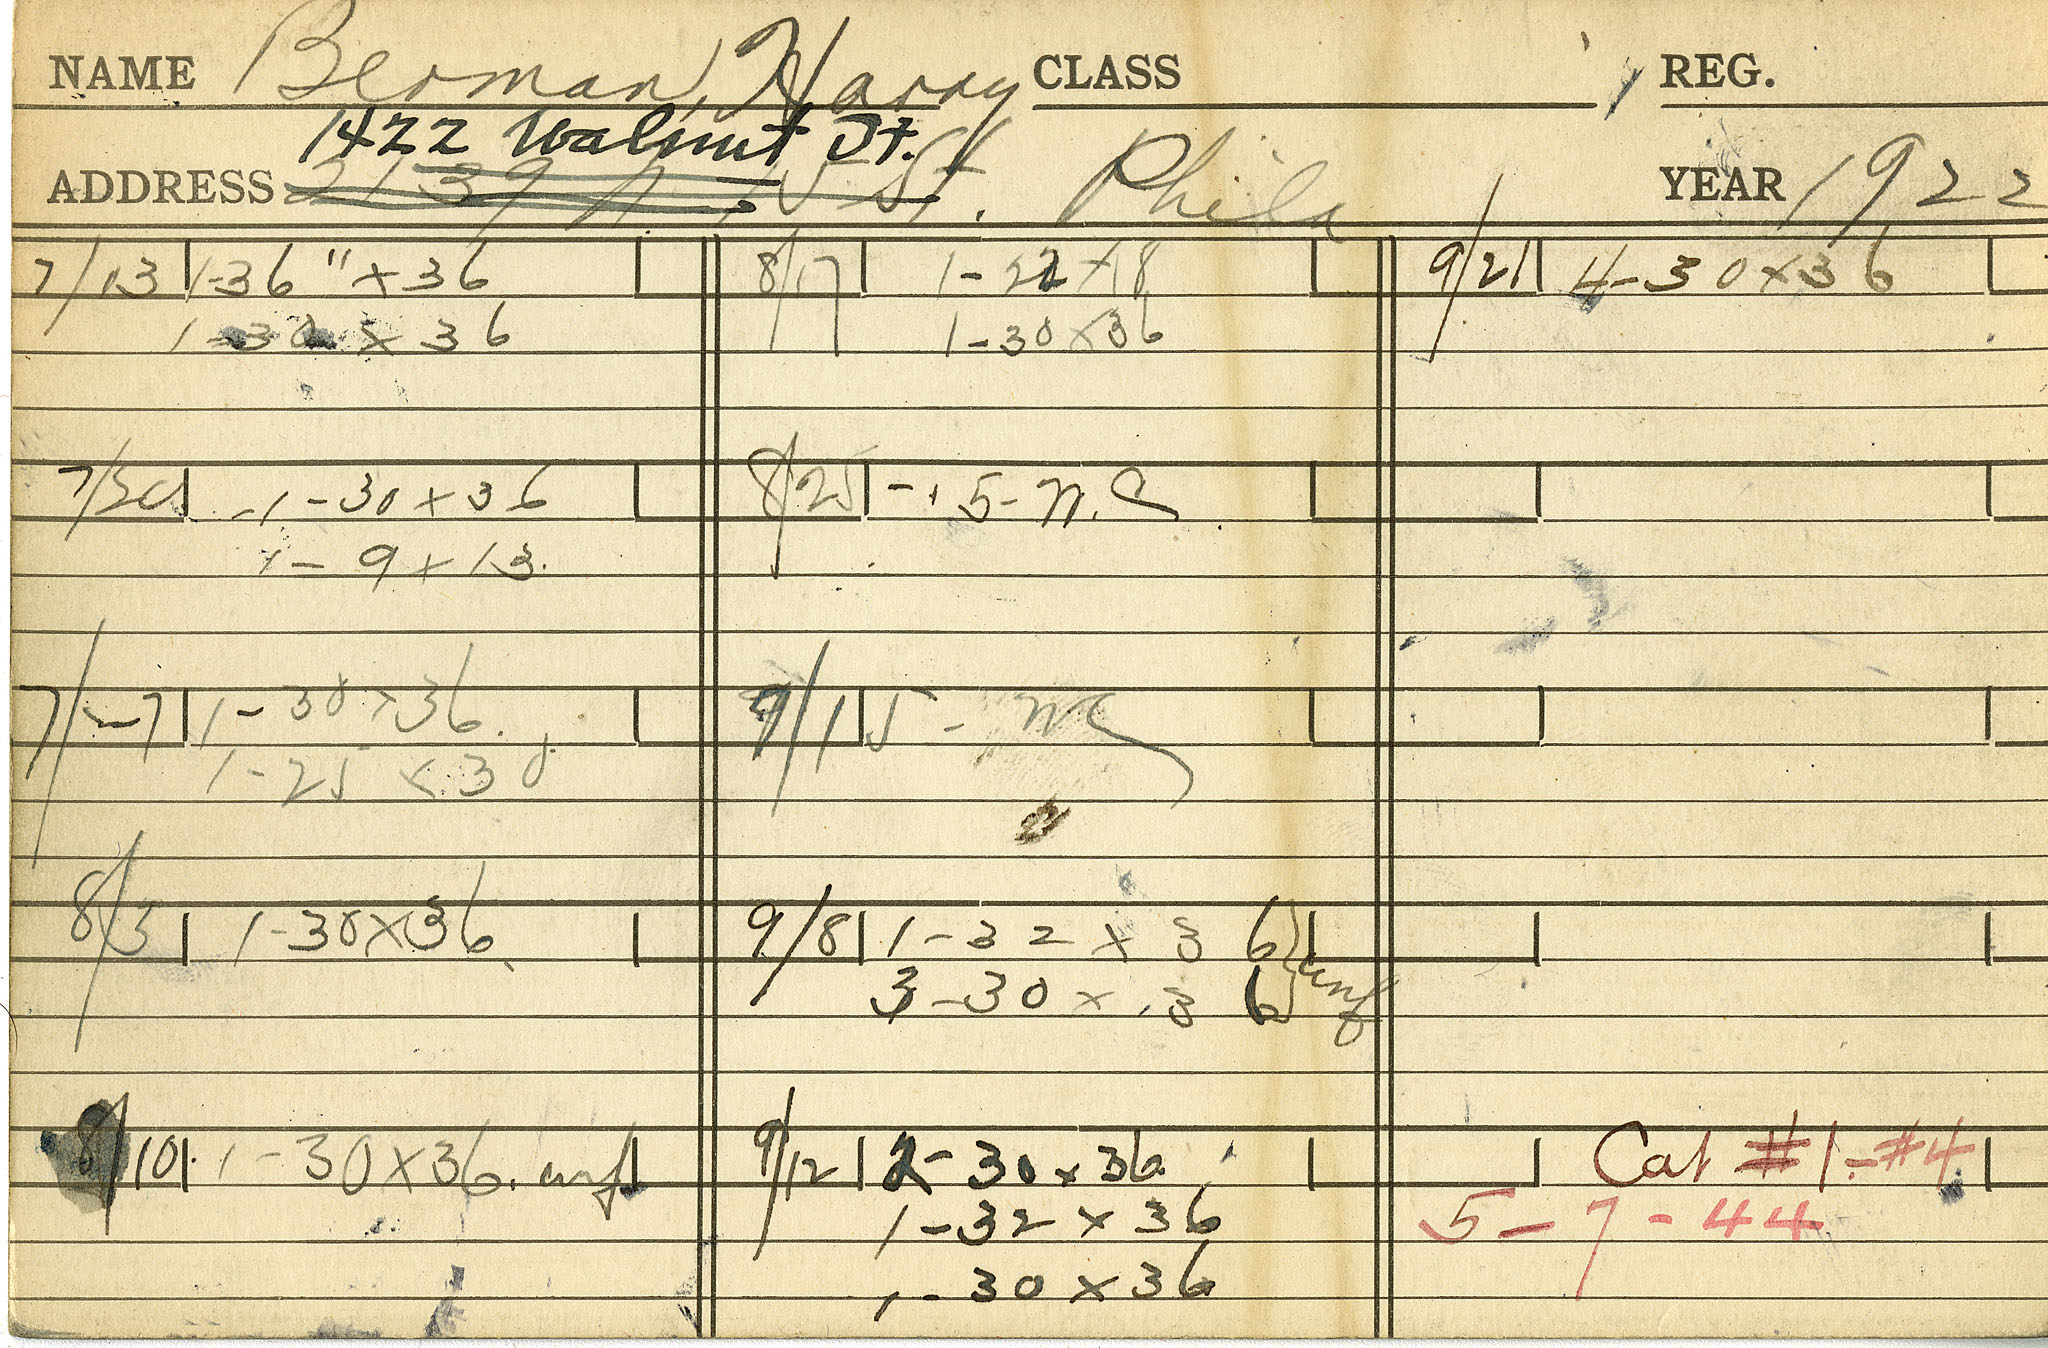 NAME Berman, Harry CLASS REG.
1422 Walnut St.
ADDRESS 2139 N. 15 St. Phila YEAR 1922
7/13 1-36" x 36
1-30 x 36
7/20 -1-30 x 36
1-9 x 13.
7/27 1-30 x 36.
1-25 x 30
8/3 1-30 x 36.
8/10 1-30 x 36. unf
8/17 1-22 x 18
1-30 x 36
8/25 - 5- N.C
9/1 5 - NC
9/8 1-32 x 36
3-30 x 36 } unf
9/12 2-30 x 36
1-32 x 36
1-30 x 36
9/21 4-30 x 36
Cat #1-#4
5-7-44